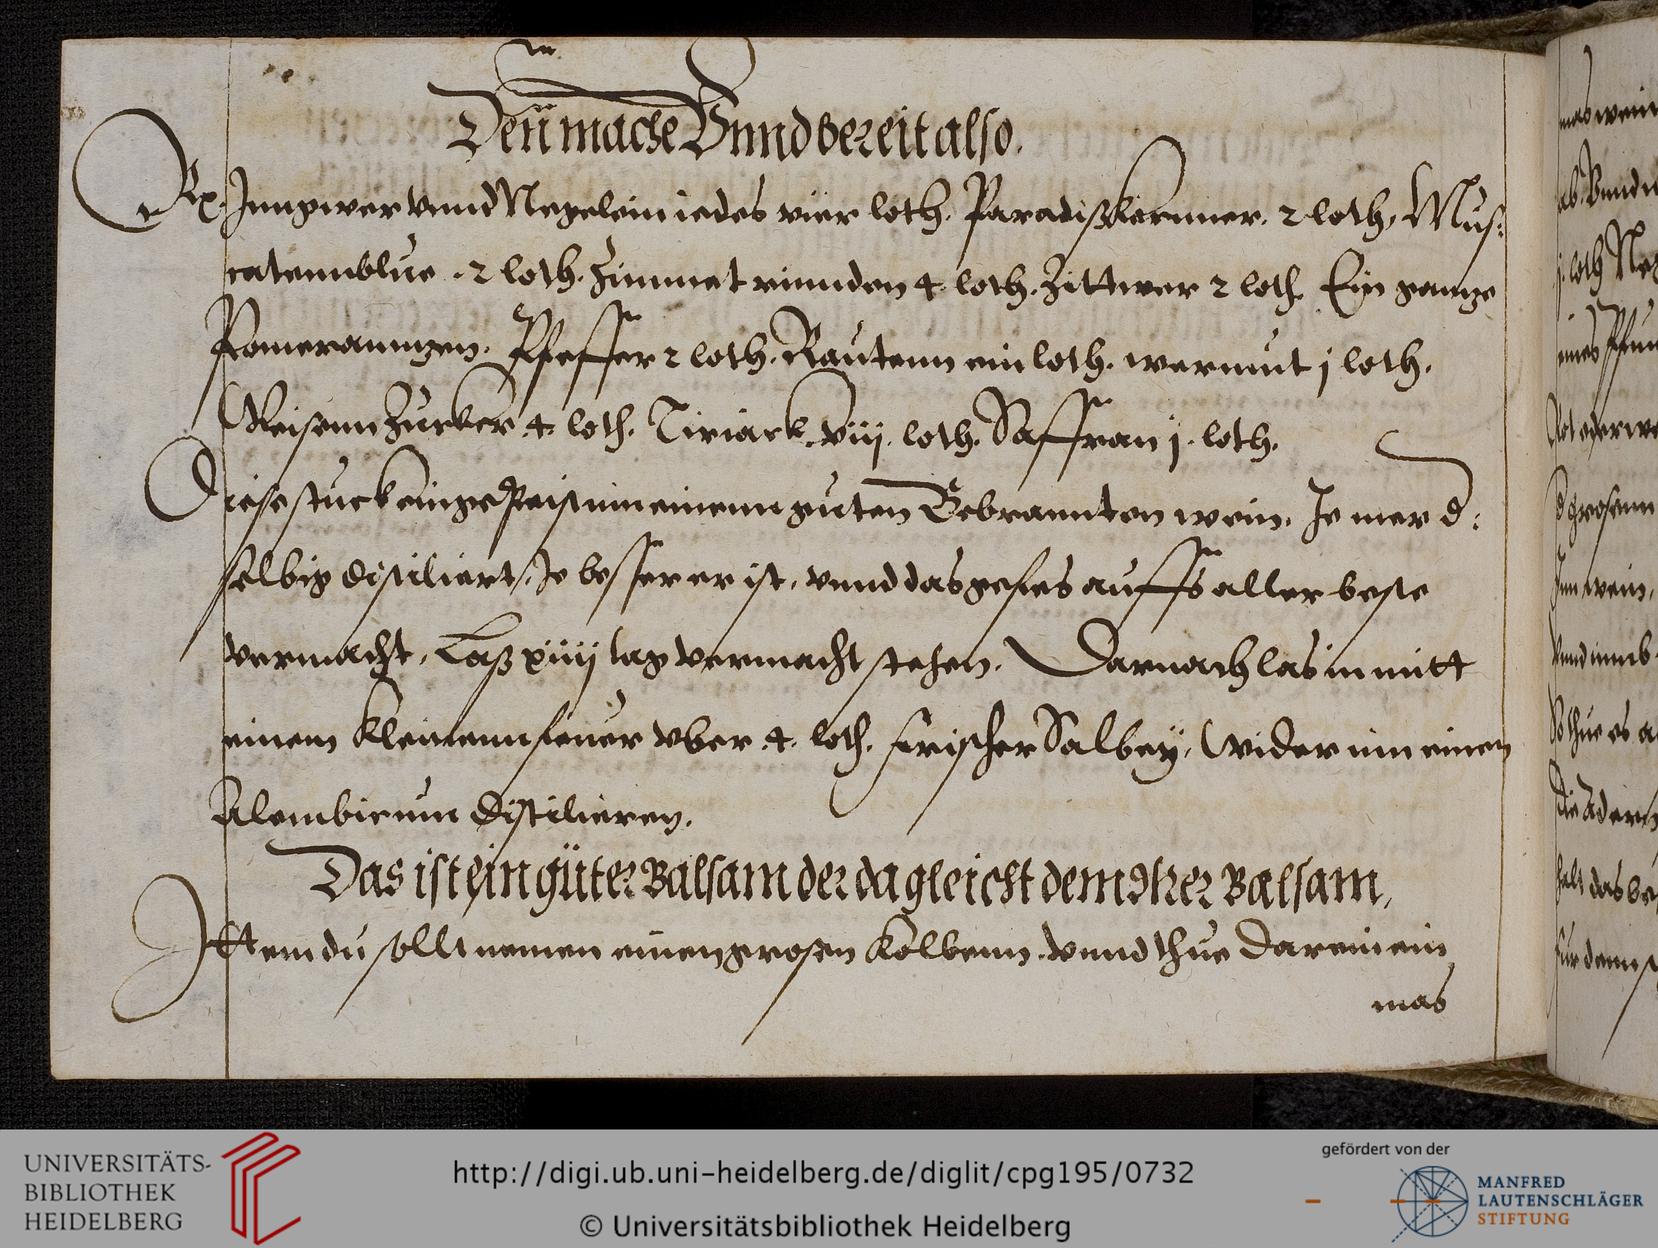 Denn mache Vnnd bereit also.
Rp. Inngwer vnnd Negelein iedes vier loth. Paradißkernner. 2 loth, Mus-
catennblue. 2 loth. Zimmet rinnden 4 loth. Zittwer 2 loth. Ein gantze
Pomeranntzen. Pfeffer 2 loth. Rautenn ein loth. wermut j loth.
Weisenn Zucker 4 loth. Tiriack viij. loth. Saffran j. loth.
Diese stuck eingepeist inn einenn guten Gebrannten wein. Je mer d:
selbig distiliert, Je besser er ist, vnnd das gefes auffs aller beste
vermacht, Laß xiiij tag vermacht stehen. Darnach las in mitt
einem kleinenn feuer vber 4. loth. frischer Salbey, Wider inn einen
Alembicum distilieren.
Das ist ein güter Balsam der da gleicht dem
Balsam,
Ittem du sollt nemen einen grosen Kolbenn. vnnd thue darein ein
mas
UNIVERSITÄTS-
BIBLIOTHEK
HEIDELBERG
http://digi.ub.uni-heidelberg.de/diglit/cpg195/0732
© Universitätsbibliothek Heidelberg
gefördert von der
MANFRED
LAUTENSCHLÄGER
STIFTUNG